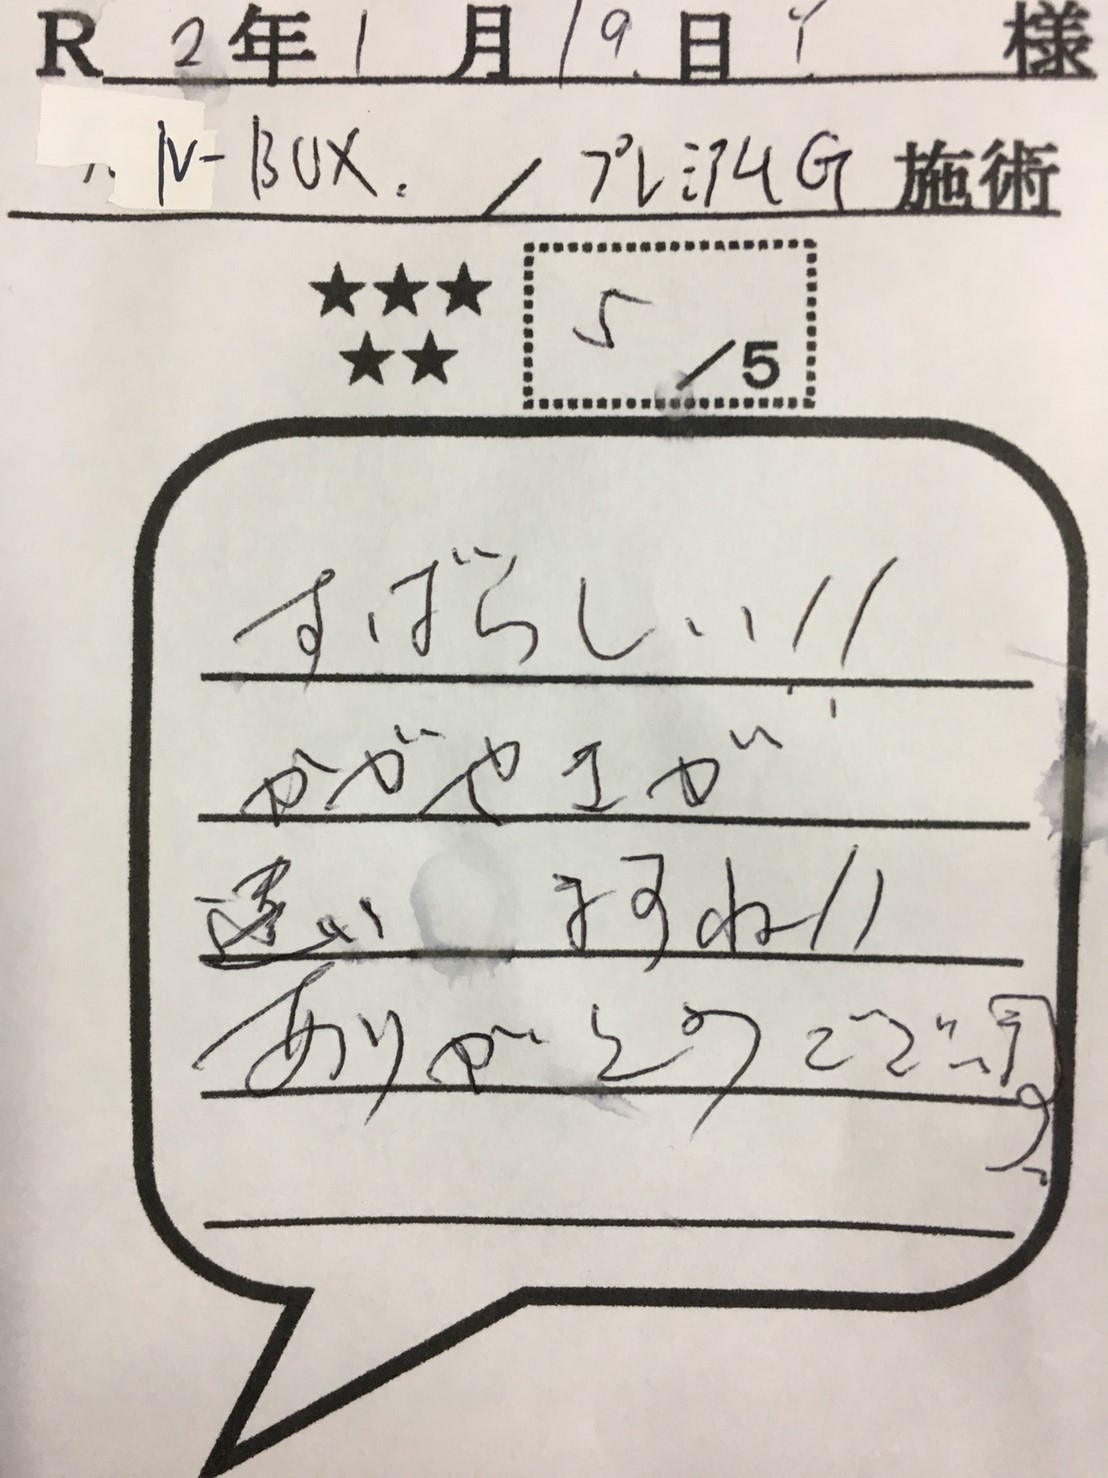 R 2年1月19日 様
N-BOX. / プレミアムG 施術
★★★
★★
5/5
すばらしい!!
かがやきが
違い ますね!!
ありがとうございます。